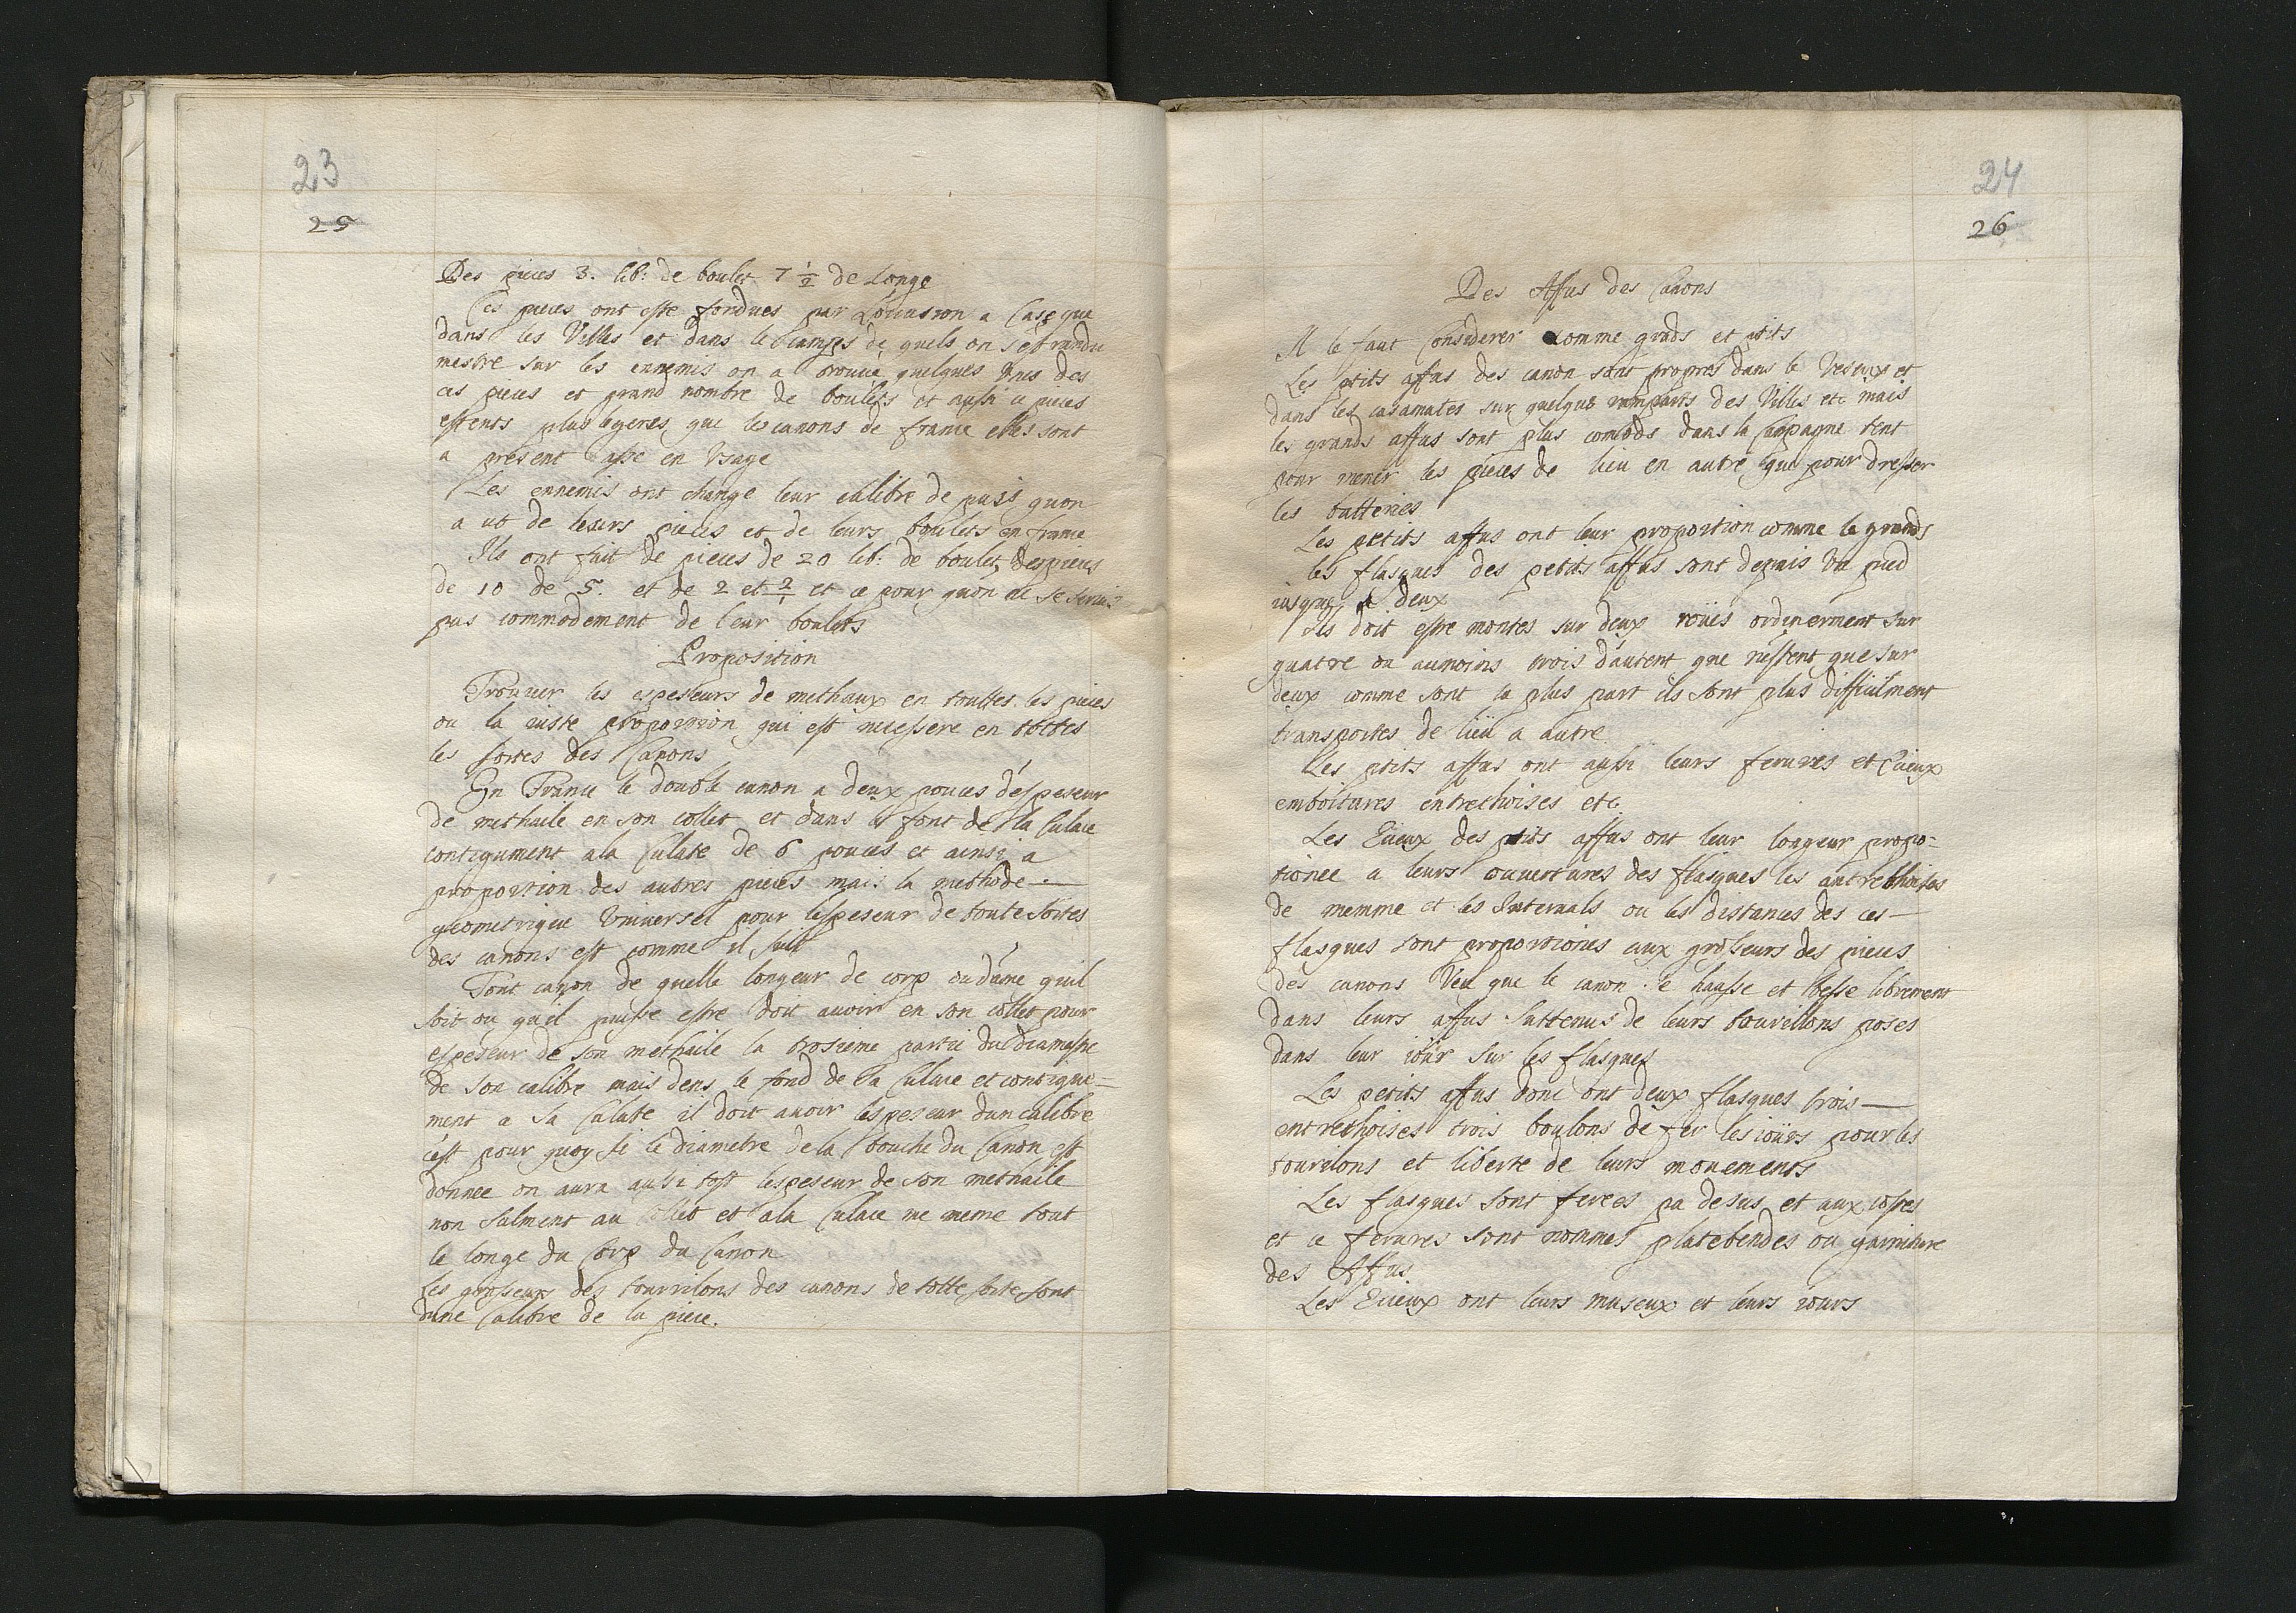 23
25
Des pieces 3. lib: de boulet 7 1/2 de Longe
Ces pieces ont este fondues par Loccasion a Cause que
dans les Villes et dans le camps de quels on s'est randu
mestre sur les ennemis on a trouue quelques Vnes des
ces pieces et grand nombre de boulets et aussi ce pieces
estents plus legeres que les canons de france elles sont
a present asse en Vsage
Les ennemis ont change leur calibre de puis quon
a ut de leurs pieces et de leurs boulets en france
Ils ont fait de pieces de 20 lib: de boulet, des pieces
de 10 de 5. et de 2 et 2/1 et ce pour quon ne se serue
pas commodement de leur boulets
Proposition
Trouuer les espeseurs de methaux en touttes les pieces
ou la iuste proportion qui est necessere en tottes
les sortes des Canons
En France le double canon a deux pouces d'espeseur
de methaile en son collet et dans le font de la Culace
contigument a la Culate de 6 pouces et ainsi a
proportion des autres pieces mais la methode —
geometrique Vniversel pour lespeseur de toute sortes
des canons est comme il suit
Tout canon de quelle longeur de corp ou d'ame quil
soit ou qu'il puisse estre doit auoir en son collet pour
espeseur de son methaile la trosieme partie du diamestre
de son calibre mais dens le fond de sa Culace et contigue=
ment a sa Culate il doit auoir lespeseur dun calibre
cest pour quoy si le diametre de la bouche du Canon est
donnee on aura aussi tost lespeseur de son methaile
non sulment au Collet et a la Culace me meme tout
le longe du Corp du Canon
Les grosseurs des tourrilons des canons de totte sorte sont
dune Calibre de la piece.
24
26
Des Affus des Canons
Il le faut Considerer comme grads et ptits
Les ptits affus des canon sont propres dans le Veseux et
dans les casamates sur quelque ramparts des Villes etc mais
les grands affus sont plus comods dans la Campagne tent
pour mener les pieces de lieu en autre que pour dresser
les batteries
Les petits affus ont leur proportion comme le grands
les flasques des petits affus sont depuis Vn pied
iusque a deux
Ils doit estre montes sur deux roües ordinerment sur
quatre ou aumoins trois d'autent que n'estent que sur
deux comme sont la plus part ils sont plus difficilment
transportes de lieu a autre
Les ptits affus ont aussi leurs ferures et Exieux
emboitures entrethoises etc
Les Exieux des ptits affus ont leur longeur propo-
tionee a leurs ouvertures des flasques les antrethoises
de memme et les Internals ou les distances des ces —
flasques sont proportiones aux groseurs des pieces
des canons Veu que le canon se hausse et besse librement
dans leurs affus suttenus de leurs tourillons poses
dans leur iour sur les flasques
Les petits affus donc ont deux flasques trois —
entrethoises trois boulons de fer les iours pour les
tourilons et liberte de leurs mouements
Les flasques sont ferees pa desus et aux costes
et ce ferures sont nommes platebendes ou garniture
des Affus.
Les Exieux ont leurs museux et leurs iours